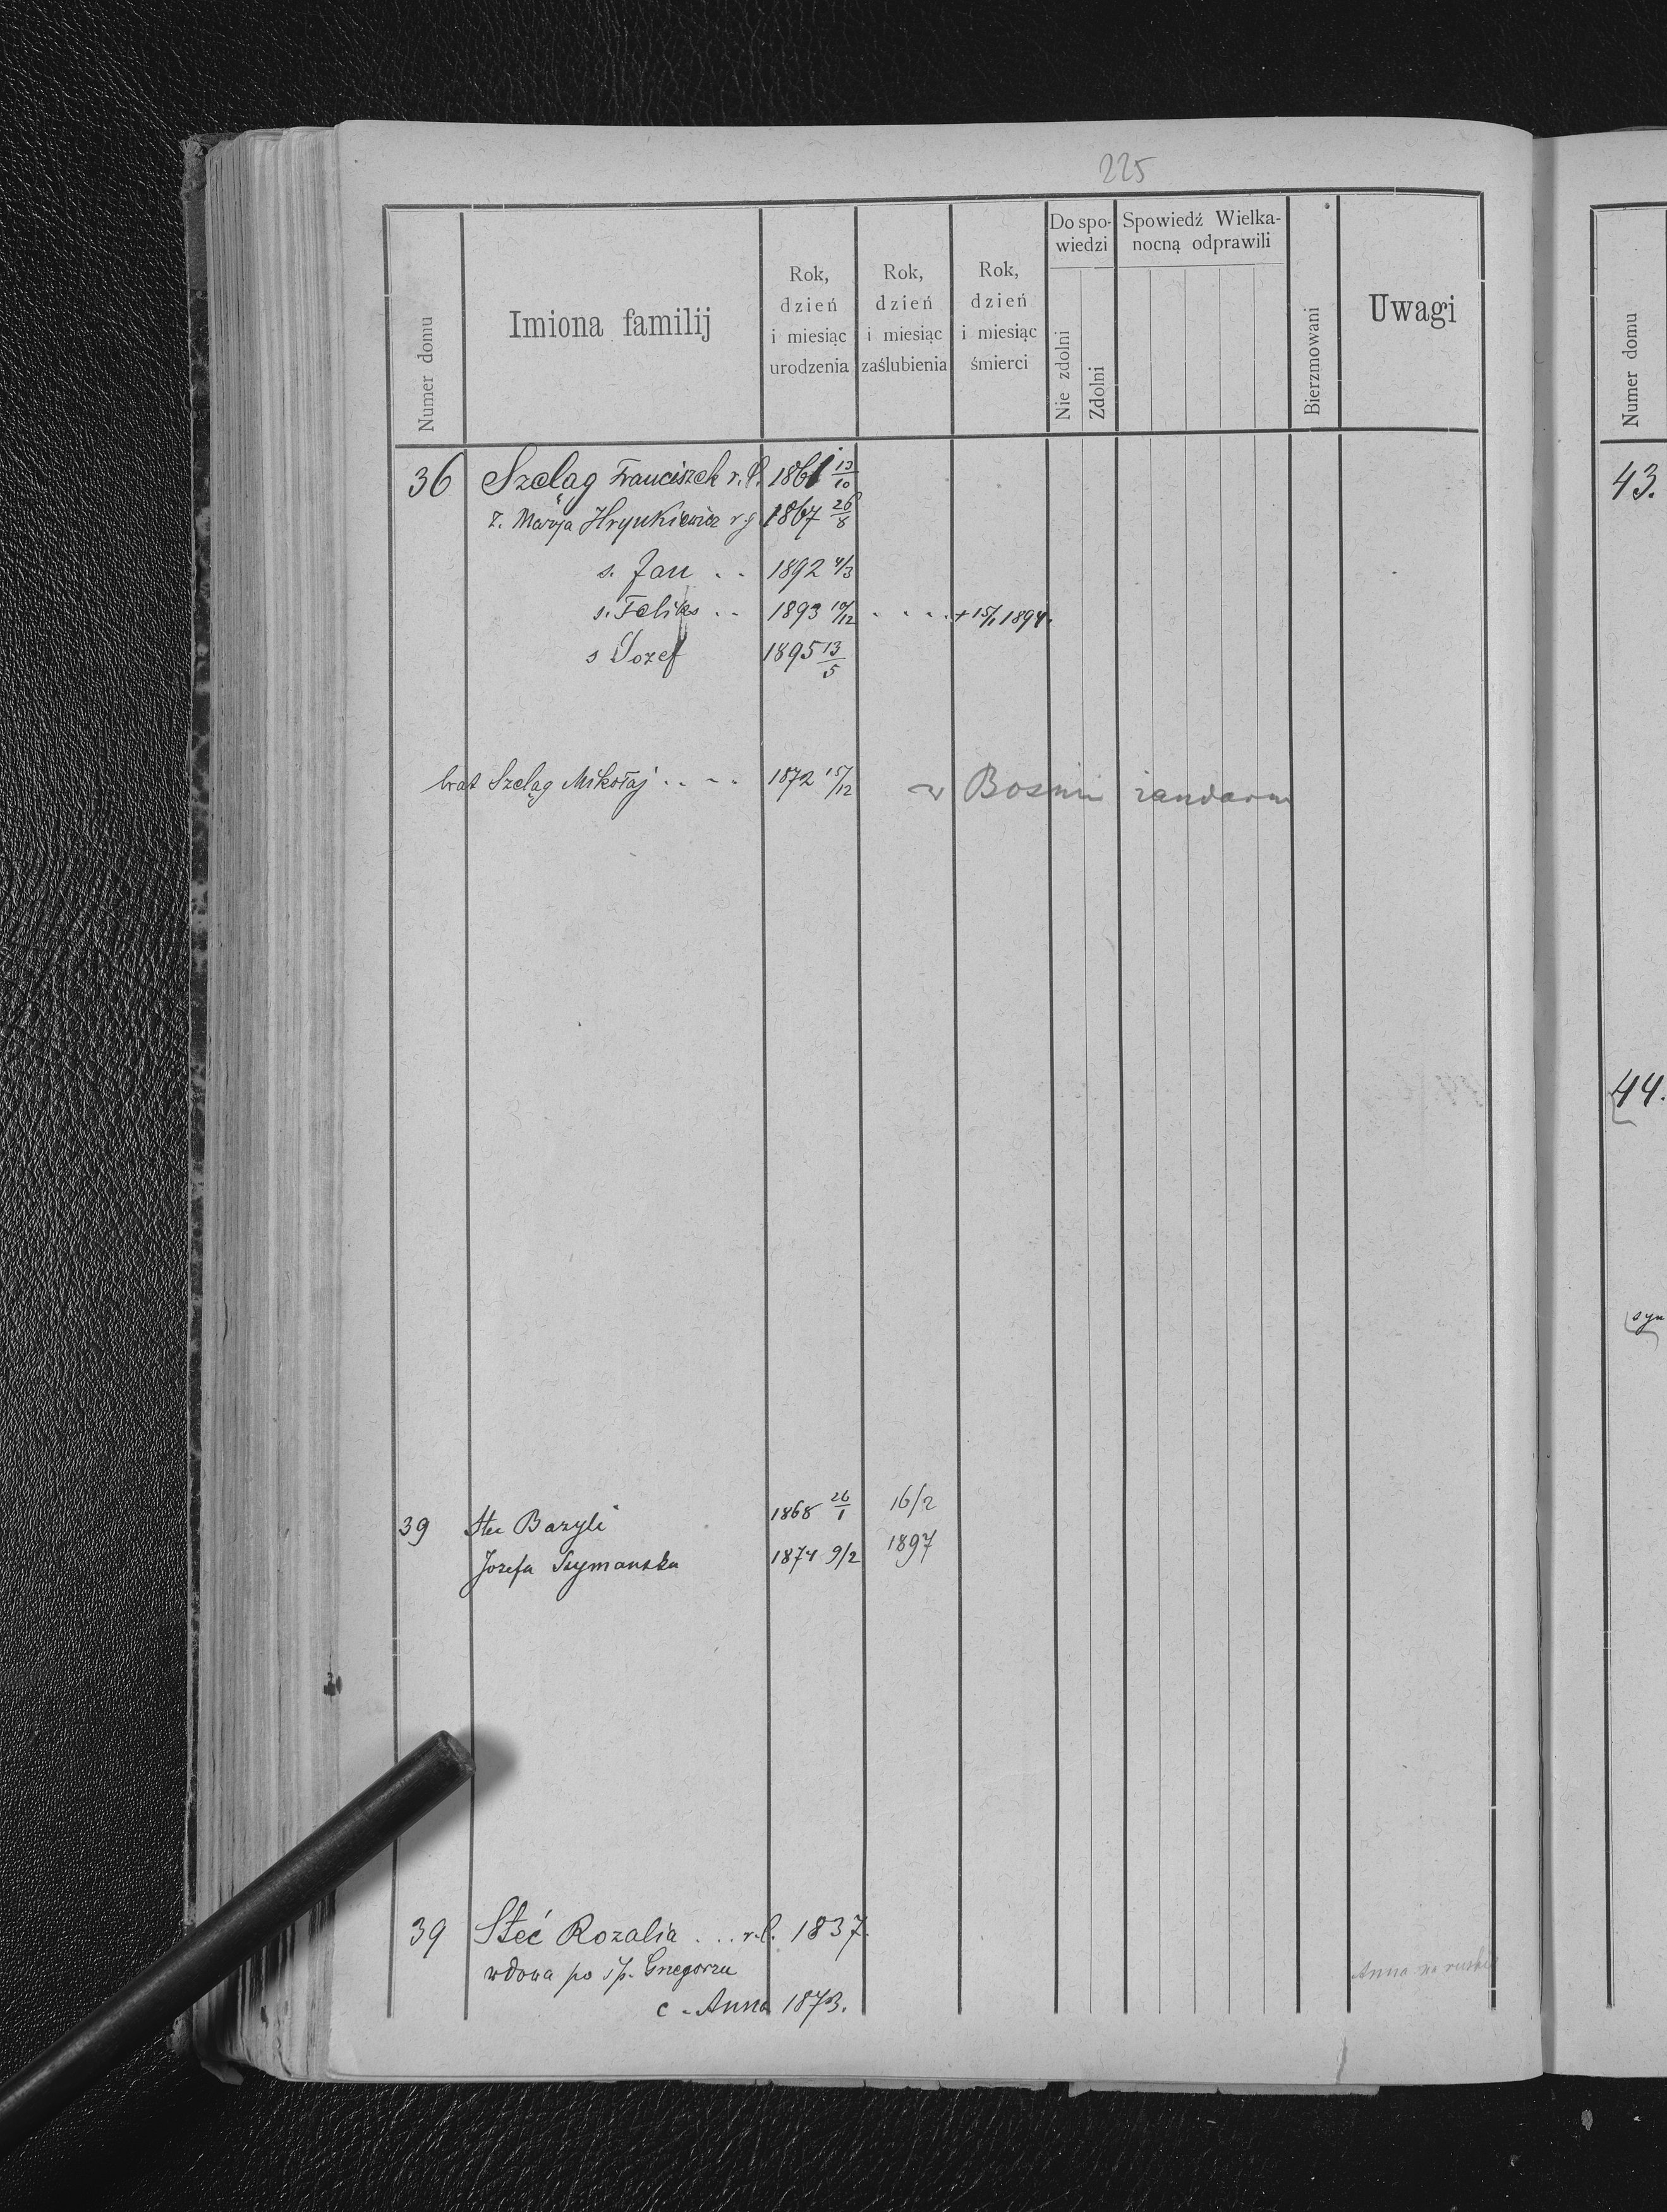 225
Numer domu
Imiona familij
Rok, dzień i miesiąc urodzenia
Rok, dzień i miesiąc zaślubienia
Rok, dzień i miesiąc śmierci
Do spowiedzi
Nie zdolni
Zdolni
Spowiedź Wielkanocną odprawili
Bierzmowani
Uwagi
36 Szeląg Franciszek r.ł. 1861 13/10
ż. Marja Hrynkiewicz r.g 1867 26/8
s. Jan .. 1892 4/3
s. Feliks .. 1893 10/12 .... + 15/1 1894.
s Jozef 1895 13/5
brat Szeląg Mikołaj .... 1872 15/12 w Bosnii żandarm
39 Stec Bazyli 1868 26/1 16/2
Jozefa Szymanska 1874 9/2 1897
39 Steć Rozalia ... r.ł. 1837.
wdowa po ś/p. Grzegorzu
c. Anna 1873.
Anna na
Numer domu
43.
44.
syn